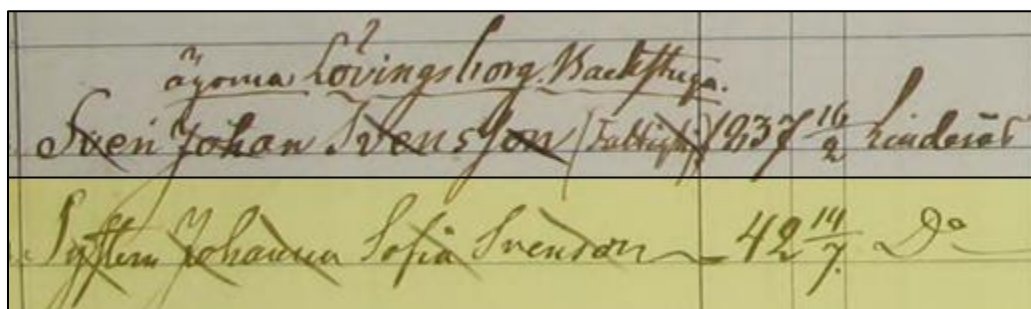 ägorna Lövingsborg. Backstuga.
Sven Johan Svensson (Fattighj.) 1837 16/2 Linderås
Systern Johanna Sofia Svenson 42 14/7. Do